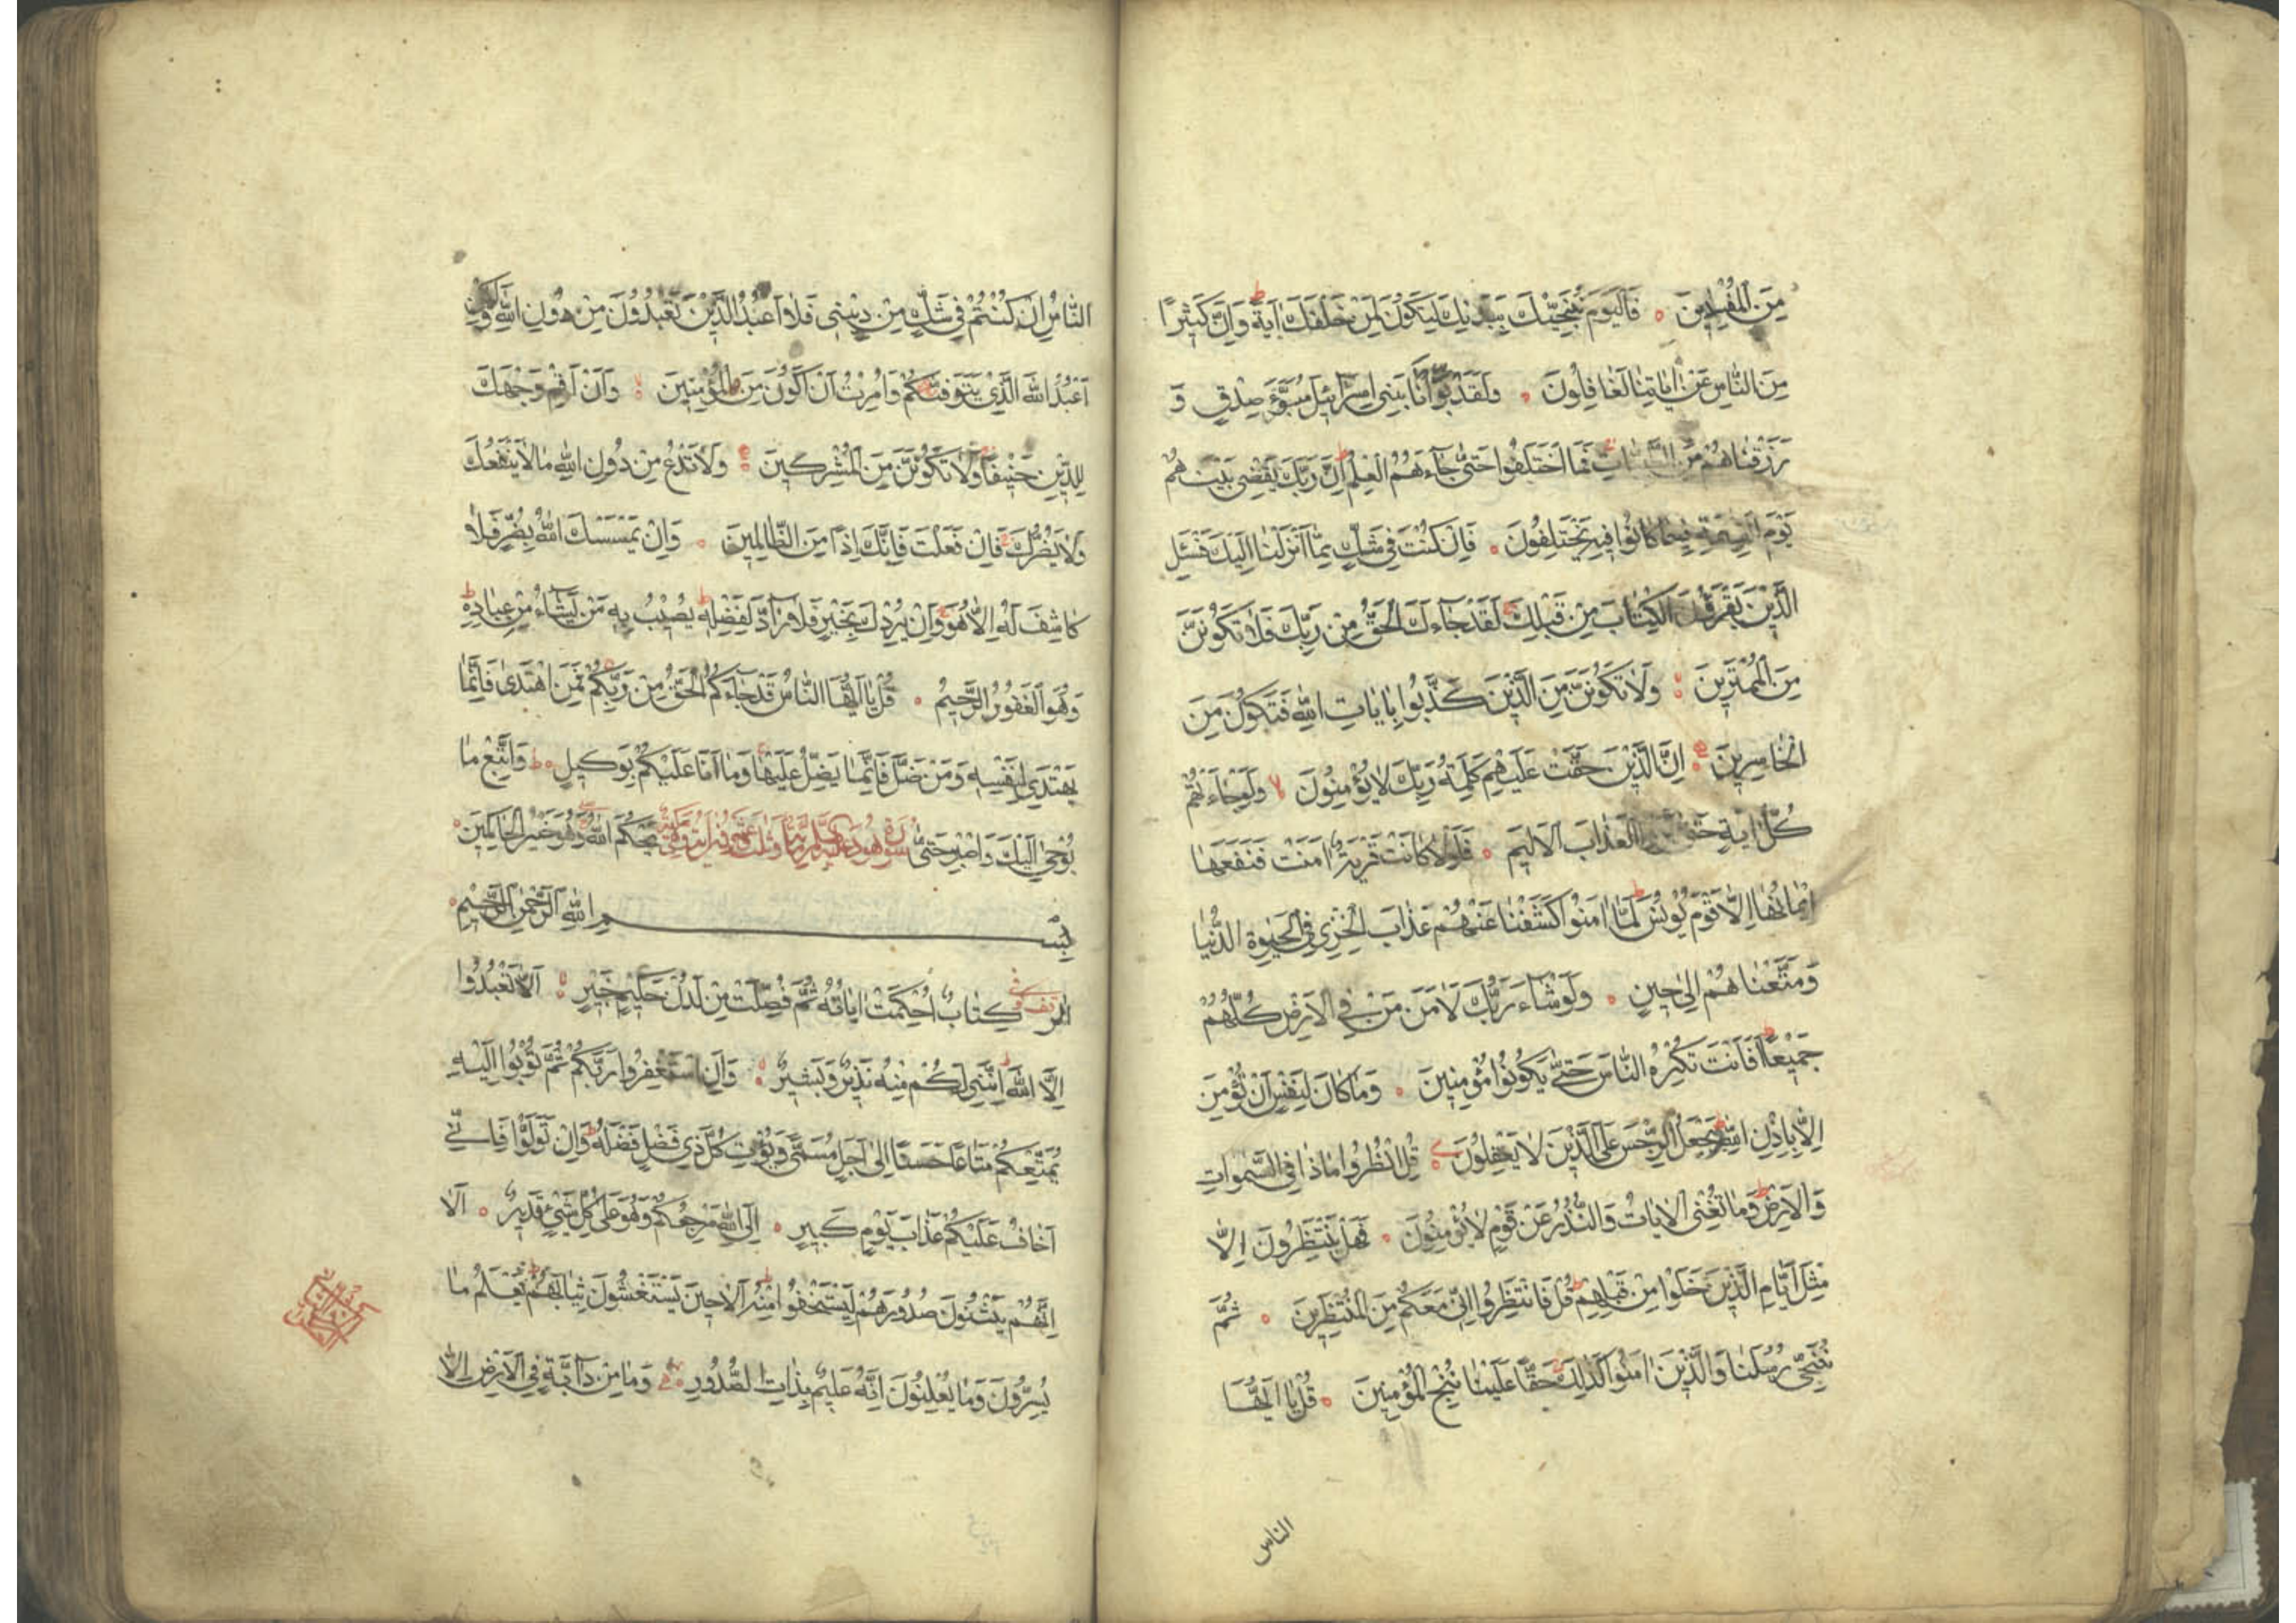 مِنَ الْمُفْسِدِينَ ۝ فَالْيَوْمَ نُنَجِّيْكَ بِبَدَنِكَ لِتَكُوْنَ لِمَنْ خَلْفَكَ اٰيَةً ط وَاِنَّ كَثِيْرًا
مِنَ النَّاسِ عَنْ اٰيَاتِنَا لَغَافِلُونَ ۝ وَلَقَدْ بَوَّاْنَا بَنِي اِسْرَائِيلَ مُبَوَّءَ صِدْقٍ وَ
رَزَقْنَاهُمْ مِنَ فَمَا اخْتَلَفُوا حَتّٰى جَآءَهُمُ الْعِلْمُ ط اِنَّ رَبَّكَ يَقْضِي بَيْنَهُمْ
يَوْمَ الْقِيٰمَةِ فِيمَا كَانُوا فِيهِ يَخْتَلِفُونَ ۝ فَاِنْ كُنْتَ فِي شَكٍّ مِمَّا اَنْزَلْنَا اِلَيْكَ فَسْئَلِ
الَّذِيْنَ يَقْرَؤُنَ الْكِتَابَ مِنْ قَبْلِكَ لَقَدْ جَآءَكَ الْحَقُّ مِنْ رَبِّكَ فَلَا تَكُوْنَنَّ
مِنَ الْمُمْتَرِينَ ۝ وَلَا تَكُوْنَنَّ مِنَ الَّذِيْنَ كَذَّبُوا بِاٰيَاتِ اللّٰهِ فَتَكُوْنَ مِنَ
الْخَاسِرِينَ ۝ اِنَّ الَّذِيْنَ حَقَّتْ عَلَيْهِمْ كَلِمَةُ رَبِّكَ لَا يُؤْمِنُونَ لا وَلَوْ جَآءَتْهُمْ
كُلُّ اٰيَةٍ الْعَذَابَ الْاَلِيمَ ۝ فَلَوْلَا كَانَتْ قَرْيَةٌ اٰمَنَتْ فَنَفَعَهَا
اِيْمَانُهَا اِلَّا قَوْمَ يُونُسَ ط لَمَّا اٰمَنُوا كَشَفْنَا عَنْهُمْ عَذَابَ الْخِزْيِ فِي الْحَيٰوةِ الدُّنْيَا
وَمَتَّعْنَاهُمْ اِلٰى حِينٍ ۝ وَلَوْ شَآءَ رَبُّكَ لَاٰمَنَ مَنْ فِي الْاَرْضِ كُلُّهُمْ
جَمِيْعًا ط اَفَاَنْتَ تُكْرِهُ النَّاسَ حَتّٰى يَكُونُوا مُؤْمِنِينَ ۝ وَمَا كَانَ لِنَفْسٍ اَنْ تُؤْمِنَ
اِلَّا بِاِذْنِ اللّٰهِ ط وَيَجْعَلُ الرِّجْسَ عَلَى الَّذِيْنَ لَا يَعْقِلُونَ ۝ قُلِ انْظُرُوا مَاذَا فِي السَّمٰوَاتِ
وَالْاَرْضِ ط وَمَا تُغْنِي الْاٰيَاتُ وَالنُّذُرُ عَنْ قَوْمٍ لَا يُؤْمِنُونَ ۝ فَهَلْ يَنْتَظِرُونَ اِلَّا
مِثْلَ اَيَّامِ الَّذِيْنَ خَلَوْا مِنْ قَبْلِهِمْ ط قُلْ فَانْتَظِرُوا اِنِّي مَعَكُمْ مِنَ الْمُنْتَظِرِينَ ۝ ثُمَّ
نُنَجِّي رُسُلَنَا وَالَّذِيْنَ اٰمَنُوا كَذٰلِكَ حَقًّا عَلَيْنَا نُنْجِ الْمُؤْمِنِينَ ۝ قُلْ يَا اَيُّهَا
الناس
النَّاسُ اِنْ كُنْتُمْ فِي شَكٍّ مِنْ دِيْنِي فَلَا اَعْبُدُ الَّذِيْنَ تَعْبُدُوْنَ مِنْ دُونِ اللّٰهِ وَلٰكِنْ
اَعْبُدُ اللّٰهَ الَّذِيْ يَتَوَفّٰيكُمْ وَاُمِرْتُ اَنْ اَكُونَ مِنَ الْمُؤْمِنِينَ ۝ وَاَنْ اَقِمْ وَجْهَكَ
لِلدِّيْنِ حَنِيْفًا وَلَا تَكُوْنَنَّ مِنَ الْمُشْرِكِينَ ۝ وَلَا تَدْعُ مِنْ دُونِ اللّٰهِ مَا لَا يَنْفَعُكَ
وَلَا يَضُرُّكَ فَاِنْ فَعَلْتَ فَاِنَّكَ اِذًا مِنَ الظَّالِمِينَ ۝ وَاِنْ يَمْسَسْكَ اللّٰهُ بِضُرٍّ فَلَا
كَاشِفَ لَهُ اِلَّا هُوَ وَاِنْ يُرِدْكَ بِخَيْرٍ فَلَا رَآدَّ لِفَضْلِهِ ط يُصِيْبُ بِهِ مَنْ يَشَآءُ مِنْ عِبَادِهِ ط
وَهُوَ الْغَفُورُ الرَّحِيمُ ۝ قُلْ يَا اَيُّهَا النَّاسُ قَدْ جَآءَكُمُ الْحَقُّ مِنْ رَبِّكُمْ فَمَنِ اهْتَدٰى فَاِنَّمَا
يَهْتَدِي لِنَفْسِهِ وَمَنْ ضَلَّ فَاِنَّمَا يَضِلُّ عَلَيْهَا وَمَا اَنَا عَلَيْكُمْ بِوَكِيلٍ ط وَاتَّبِعْ مَا
يُوحٰى اِلَيْكَ وَاصْبِرْ حَتّٰى سورة هود يَحْكُمَ اللّٰهُ وَهُوَ خَيْرُ الْحَاكِمِينَ ۝
بِسْمِ اللّٰهِ الرَّحْمٰنِ الرَّحِيمِ ۝
الٰرٰ كِتَابٌ اُحْكِمَتْ اٰيَاتُهُ ثُمَّ فُصِّلَتْ مِنْ لَدُنْ حَكِيمٍ خَبِيرٍ ۝ اَلَّا تَعْبُدُوا
اِلَّا اللّٰهَ ط اِنَّنِي لَكُمْ مِنْهُ نَذِيْرٌ وَبَشِيرٌ ۝ وَاَنِ اسْتَغْفِرُوا رَبَّكُمْ ثُمَّ تُوبُوا اِلَيْهِ
يُمَتِّعْكُمْ مَتَاعًا حَسَنًا اِلٰى اَجَلٍ مُسَمًّى وَيُؤْتِ كُلَّ ذِي فَضْلٍ فَضْلَهُ ط وَاِنْ تَوَلَّوْا فَاِنِّي
اَخَافُ عَلَيْكُمْ عَذَابَ يَوْمٍ كَبِيرٍ ۝ اِلَى اللّٰهِ مَرْجِعُكُمْ وَهُوَ عَلٰى كُلِّ شَيْءٍ قَدِيْرٌ ۝ اَلَا
اِنَّهُمْ يَثْنُونَ صُدُورَهُمْ لِيَسْتَخْفُوا مِنْهُ ط اَلَا حِينَ يَسْتَغْشُونَ ثِيَابَهُمْ ط يَعْلَمُ مَا
يُسِرُّونَ وَمَا يُعْلِنُونَ اِنَّهُ عَلِيمٌ بِذَاتِ الصُّدُورِ ۝ وَمَا مِنْ دَآبَّةٍ فِي الْاَرْضِ اِلَّا